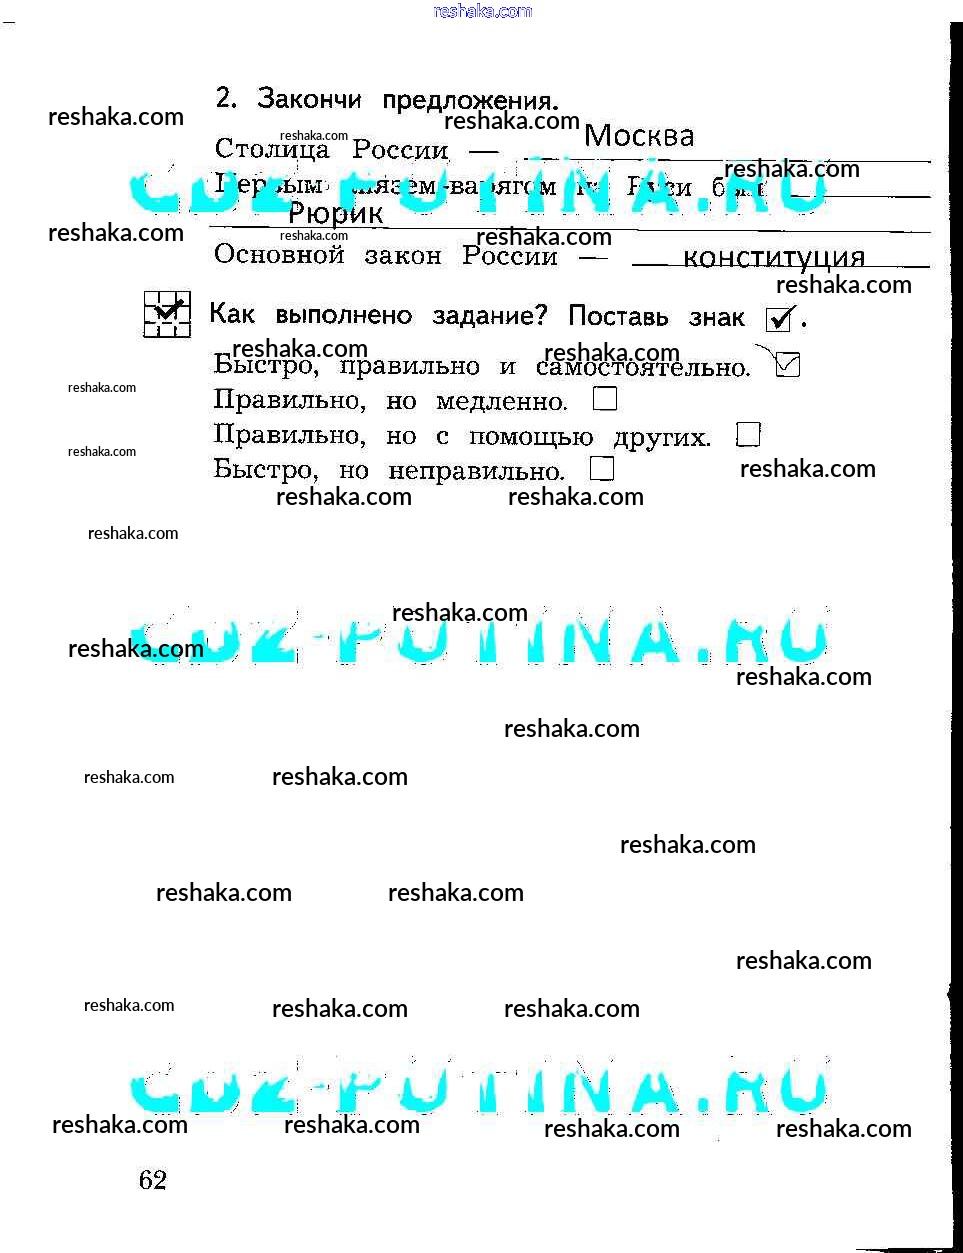 reshaka.com
2. Закончи предложения.
reshaka.com reshaka.com
reshaka.com Москва
Столица России —
reshaka.com
Первым князем-варягом на Руси был
CDZ-PUTINA.RU
Рюрик
reshaka.com reshaka.com reshaka.com
Основной закон России — конституция
reshaka.com
Как выполнено задание? Поставь знак ✓.
reshaka.com reshaka.com
Быстро, правильно и самостоятельно.
reshaka.com
Правильно, но медленно.
Правильно, но с помощью других.
reshaka.com
Быстро, но неправильно. reshaka.com
reshaka.com reshaka.com
reshaka.com
reshaka.com
CDZ-PUTINA.RU
reshaka.com
reshaka.com
reshaka.com
reshaka.com reshaka.com
reshaka.com
reshaka.com reshaka.com
reshaka.com
reshaka.com reshaka.com reshaka.com
CDZ-PUTINA.RU
reshaka.com reshaka.com reshaka.com reshaka.com
62